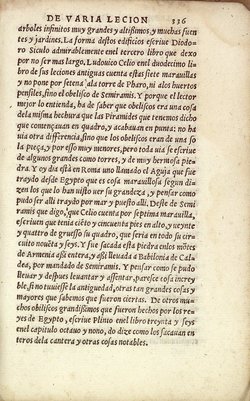 DE VARIA LECION 336
arboles infinitos muy grandes y altißimos, y muchas fuen
tes y jardines. La forma destos edificios escriue Diodo-
ro Siculo admirablemente enel tercero libro que dexo
por no ser mas largo. Ludouico Celio enel duodecimo libro
de las leciones antiguas cuenta estas siete marauillas
y no pone por setena a la torre de Pharo, ni alos huertos
pensiles, sino el obelisco de Semiramis. Y porque el lector
mejor lo entienda, ha de saber que obeliscos era una cosa
dela misma hechura que las Piramides que tenemos dicho
que començauan en quadro, y acabauan en punta: no ha
uia otra diferencia, sino que los obeliscos eran de una so
la pieça, y por esso muy menores, pero toda uia se escriue
de algunos grandes como torres, y de muy hermosa pie
dra. Y oy dia està en Roma uno llamado el Aguja que fue
traydo desde Egypto que es cosa marauillosa segun dizen
los que lo han uisto uer su grandeza, y pensar como
pudo ser alli traydo por mar y puesto alli. Deste de Semi
ramis que digo, que Celio cuenta por septima marauilla,
escriuen que tenia ciēto y cincuenta pies en alto, y ueynte
y quatro de gruesso su quadro, que seria en todo su circuito
nouēta y seys. Y fue sacada esta piedra enlos mōtes
de Armenia aßi entera, y aßi lleuada a Babilonia de Cal
dea, por mandado de Semiramis. Y pensar como se pudo
lleuar y despues leuantar y assentar, paresce cosa increy
ble, si no tuuiesse la antiguedad, otras tan grandes cosas y
mayores que sabemos que fueron ciertas. De otros mu-
chos obiliscos grandißimos que fueron hechos por los re-
yes de Egypto, escriue Plinio enel libro treynta y seys
enel capitulo octauo y nono, do dize como los sacauan en
teros dela cantera y otras cosas notables.